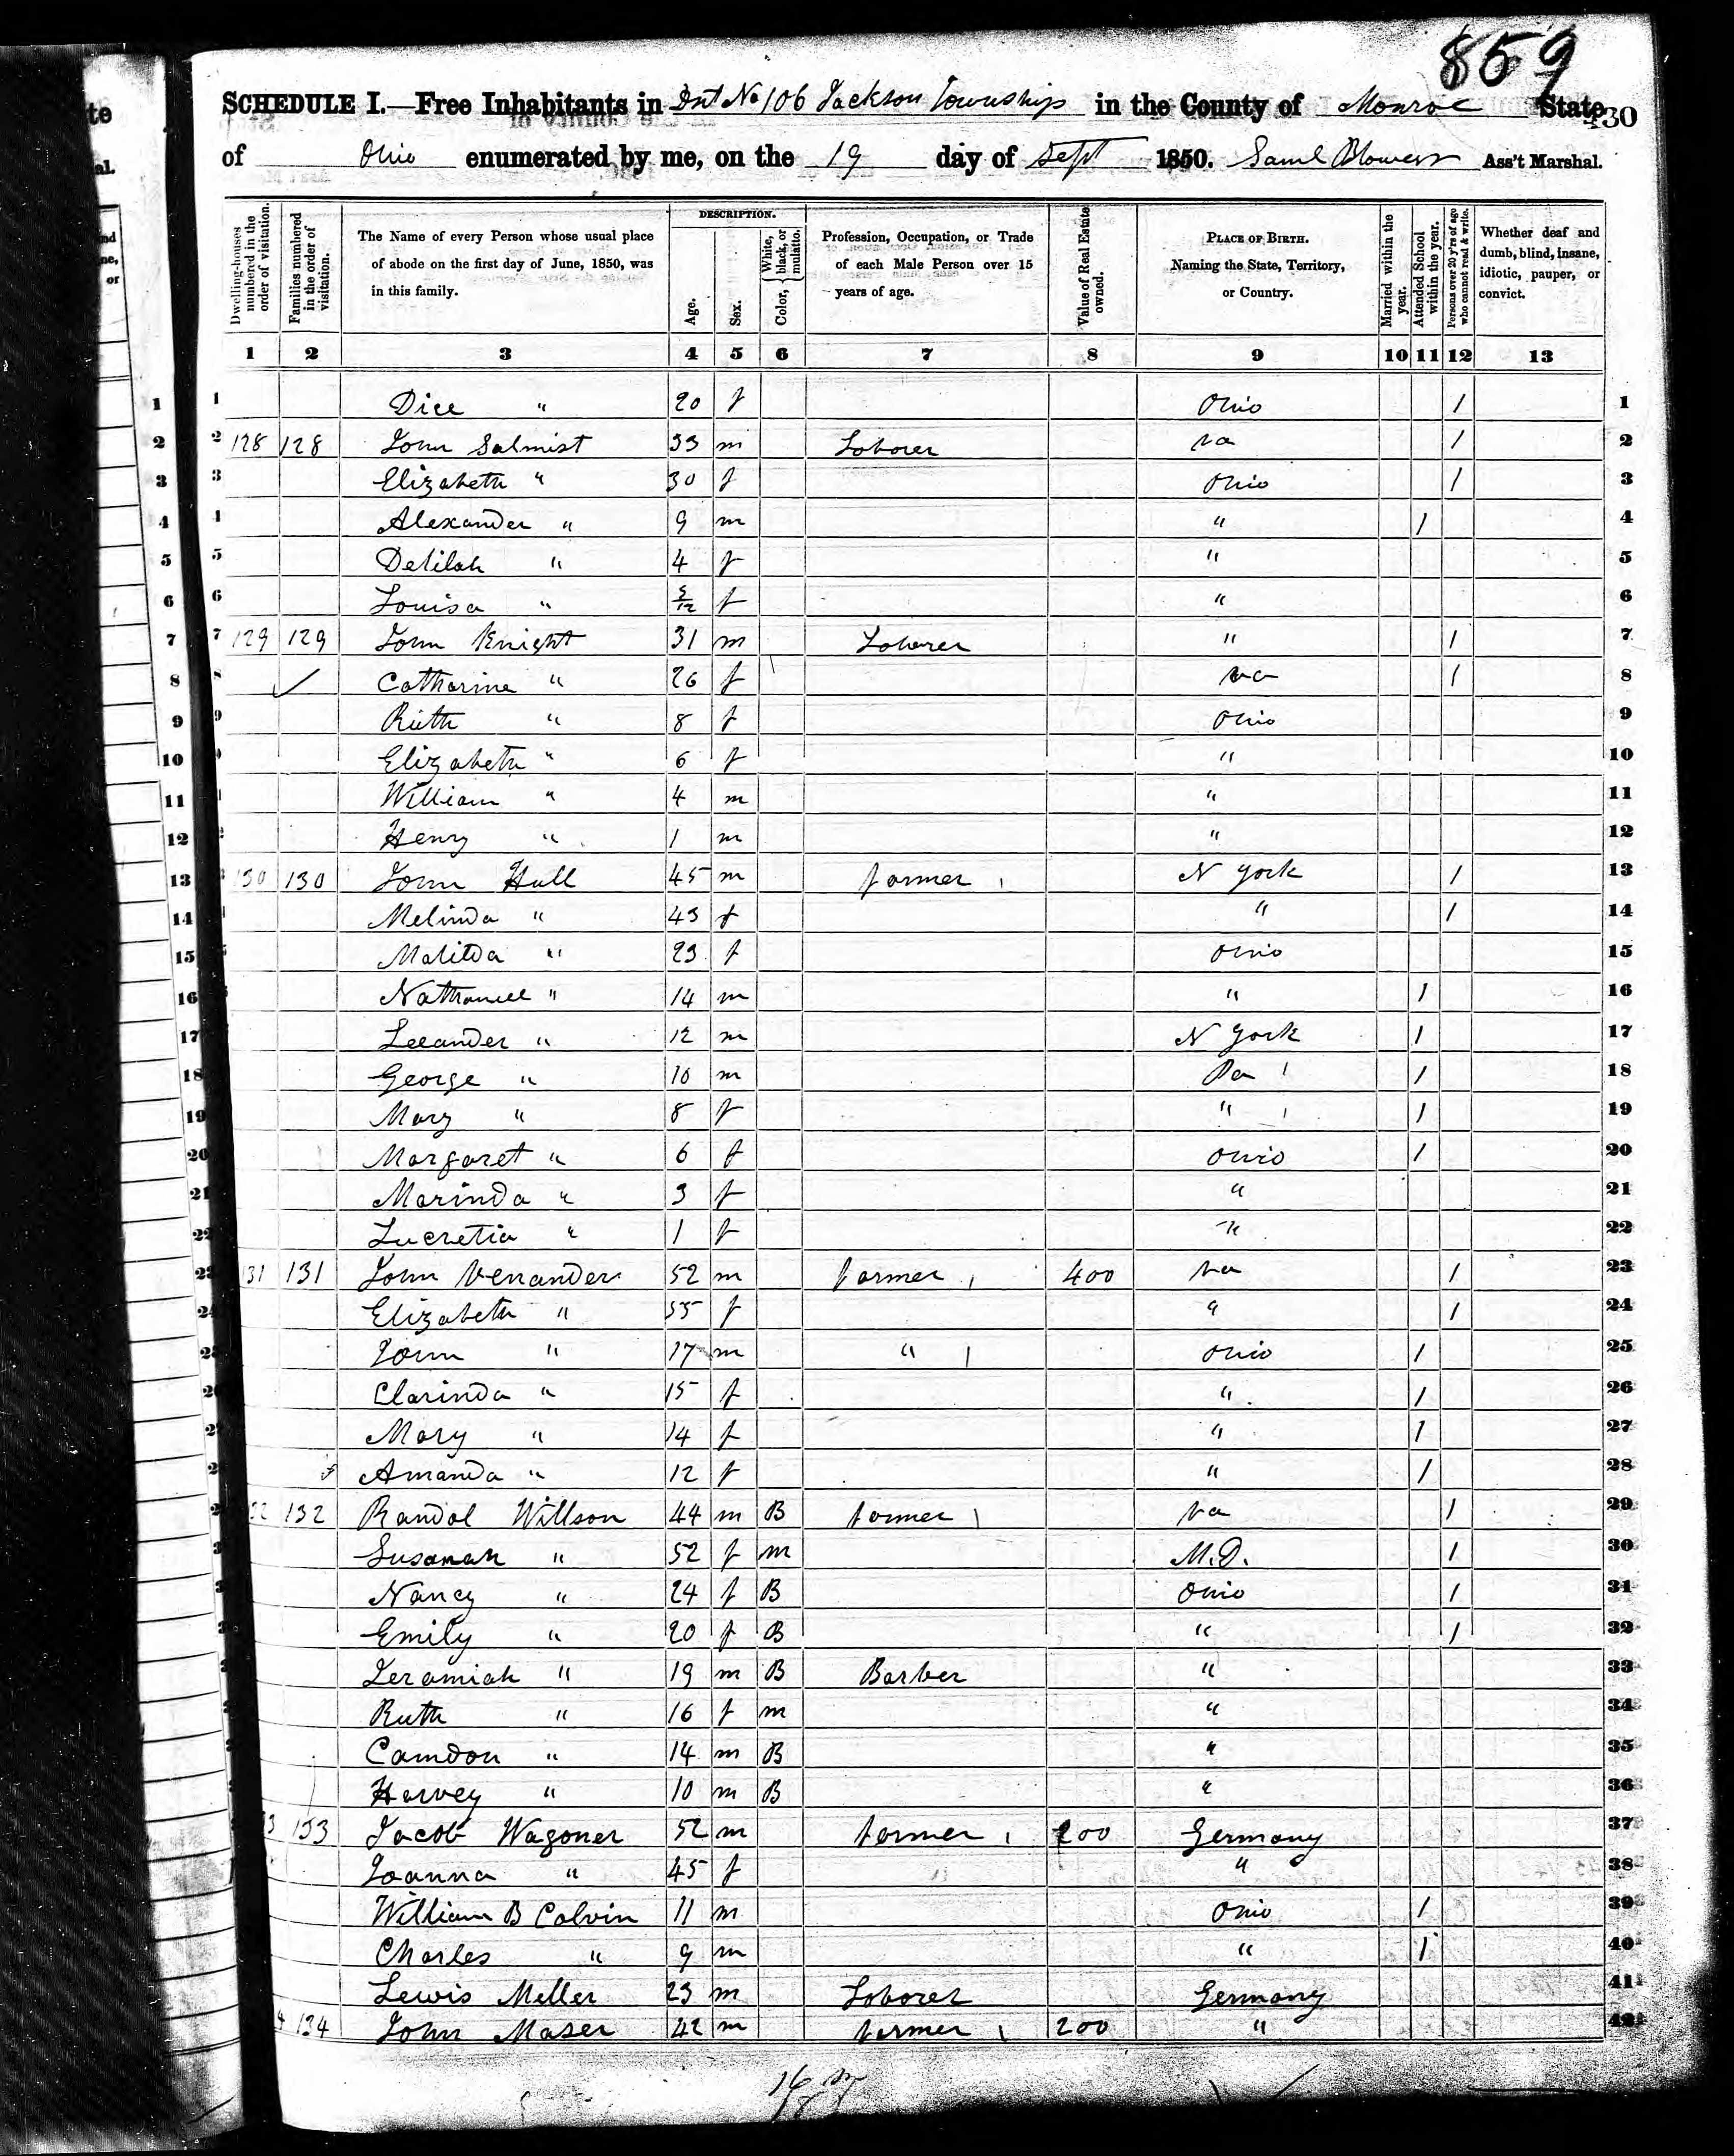 859
SCHEDULE I.—Free Inhabitants in Dist No 106 Jackson Township in the County of Monroe State
430
of Ohio enumerated by me, on the 19 day of Sept 1850. Saml Blowers Ass't Marshal.
Dwelling-houses numbered in the order of visitation.
Families numbered in the order of visitation.
The Name of every Person whose usual place of abode on the first day of June, 1850, was in this family.
DESCRIPTION.
Age.
Sex.
Color, White, black, or mulatto.
Profession, Occupation, or Trade of each Male Person over 15 years of age.
Value of Real Estate owned.
PLACE OF BIRTH. Naming the State, Territory, or Country.
Married within the year.
Attended School within the year.
Persons over 20 y'rs of age who cannot read & write.
Whether deaf and dumb, blind, insane, idiotic, pauper, or convict.
1 2 3 4 5 6 7 8 9 10 11 12 13
1 Dice " 20 f Ohio / 1
2 128 128 John Salmist 33 m Laborer Va / 2
3 Elizabeth " 30 f Ohio / 3
4 Alexander " 9 m " / 4
5 Delilah " 4 f " 5
6 Louisa " 5/12 f " 6
7 129 129 John Knight 31 m Laborer " / 7
8 Catharine " 26 f Va / 8
9 Ruth " 8 f Ohio 9
10 Elizabeth " 6 f " 10
11 William " 4 m " 11
12 Henry " 1 m " 12
13 130 130 John Hall 45 m farmer N York / 13
14 Melinda " 43 f " / 14
15 Matilda " 23 f Ohio 15
16 Nathaniel " 14 m " / 16
17 Leeander " 12 m N York / 17
18 George " 10 m Pa / 18
19 Mary " 8 f " / 19
20 Margaret " 6 f Ohio / 20
21 Marinda " 3 f " 21
22 Lucretia " 1 f " 22
23 131 131 John Venander 52 m farmer 400 Va / 23
24 Elizabeth " 55 f " / 24
25 John " 17 m " Ohio / 25
26 Clarinda " 15 f " / 26
27 Mary " 14 f " / 27
28 Amanda " 12 f " / 28
29 132 132 Randol Willson 44 m B farmer Va / 29
30 Susanah " 52 f m M.D. / 30
31 Nancy " 24 f B Ohio / 31
32 Emily " 20 f B " / 32
33 Jeramiah " 19 m B Barber " 33
34 Ruth " 16 f m " 34
35 Camdon " 14 m B " 35
36 Harvey " 10 m B " 36
37 133 Jacob Wagoner 52 m farmer 200 Germany 37
38 Joanna " 45 f " 38
39 William B Colvin 11 m Ohio / 39
40 Charles " 9 m " / 40
41 Lewis Meller 23 m Laborer Germany 41
42 134 John Maser 42 m farmer 200 " 42